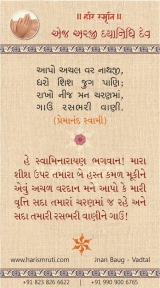 ॥ હરિ સ્મૃતિ ॥
એજ અરજી દયાનિધિ દેવ
આપો અચલ વર નાથજી,
ધરો શિશ જુગ પાણિ;
રાખો નીજ મન ચરણમાં,
ગાઉં રસભરી વાણી.
(પ્રેમાનંદ સ્વામી)
હે સ્વામિનારાયણ ભગવાન! મારા
શીશ ઉપર તમારા બે હસ્ત કમળ મૂકીને
એવું અચળ વરદાન મને આપો કે મારી
વૃત્તિ સદા તમારાં ચરણમાં જ રહે અને
સદા તમારી રસભરી વાણીને ગાઉં!
www.harismruti.com
Jnan Baug - Vadtal
+91 823 826 6622 | +91 990 900 6765